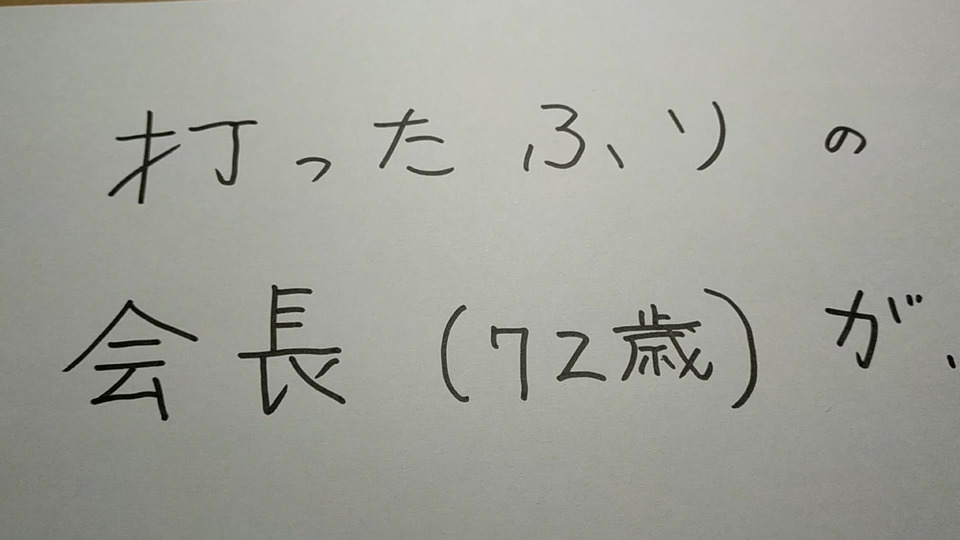 打ったふりの
会長(72歳)が、